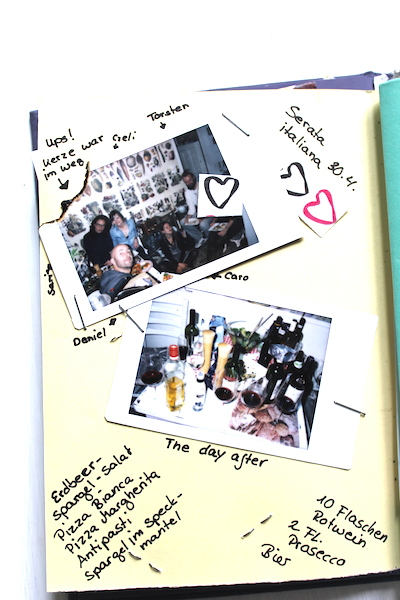 Ups!
Kerze war
im Weg
Feli
Torsten
Serata
italiana 30.4.
Sanja
Caro
Daniel
The day after
Erdbeer-
spargel-Salat
Pizza Bianca
Pizza Margherita
Antipasti
Spargel im Speck-
mantel
10 Flaschen
Rotwein
2 Fl.
Prosecco
Bier